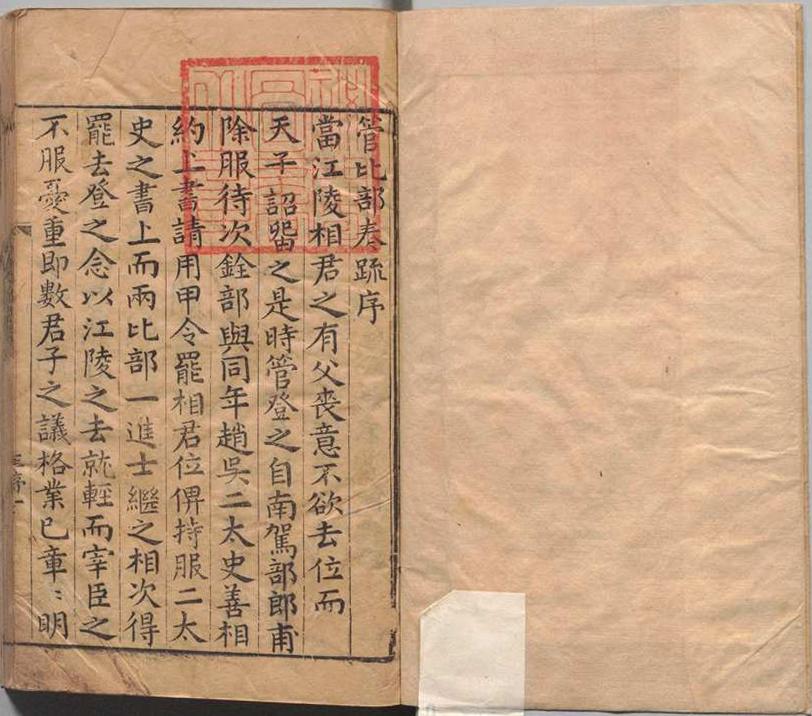 管比部奏疏序
當江陵相君之有父喪意不欲去位而
天子詔留之是時管登之自南駕部郎甫
除服待次銓部與同年趙吳二太史善相
約上書請用甲令罷相君位俾持服二太
史之書上而兩比部一進士繼之相次得
罷去登之念以江陵之去就輕而宰臣之
不服憂重即數君子之議格業已章〻明
序一